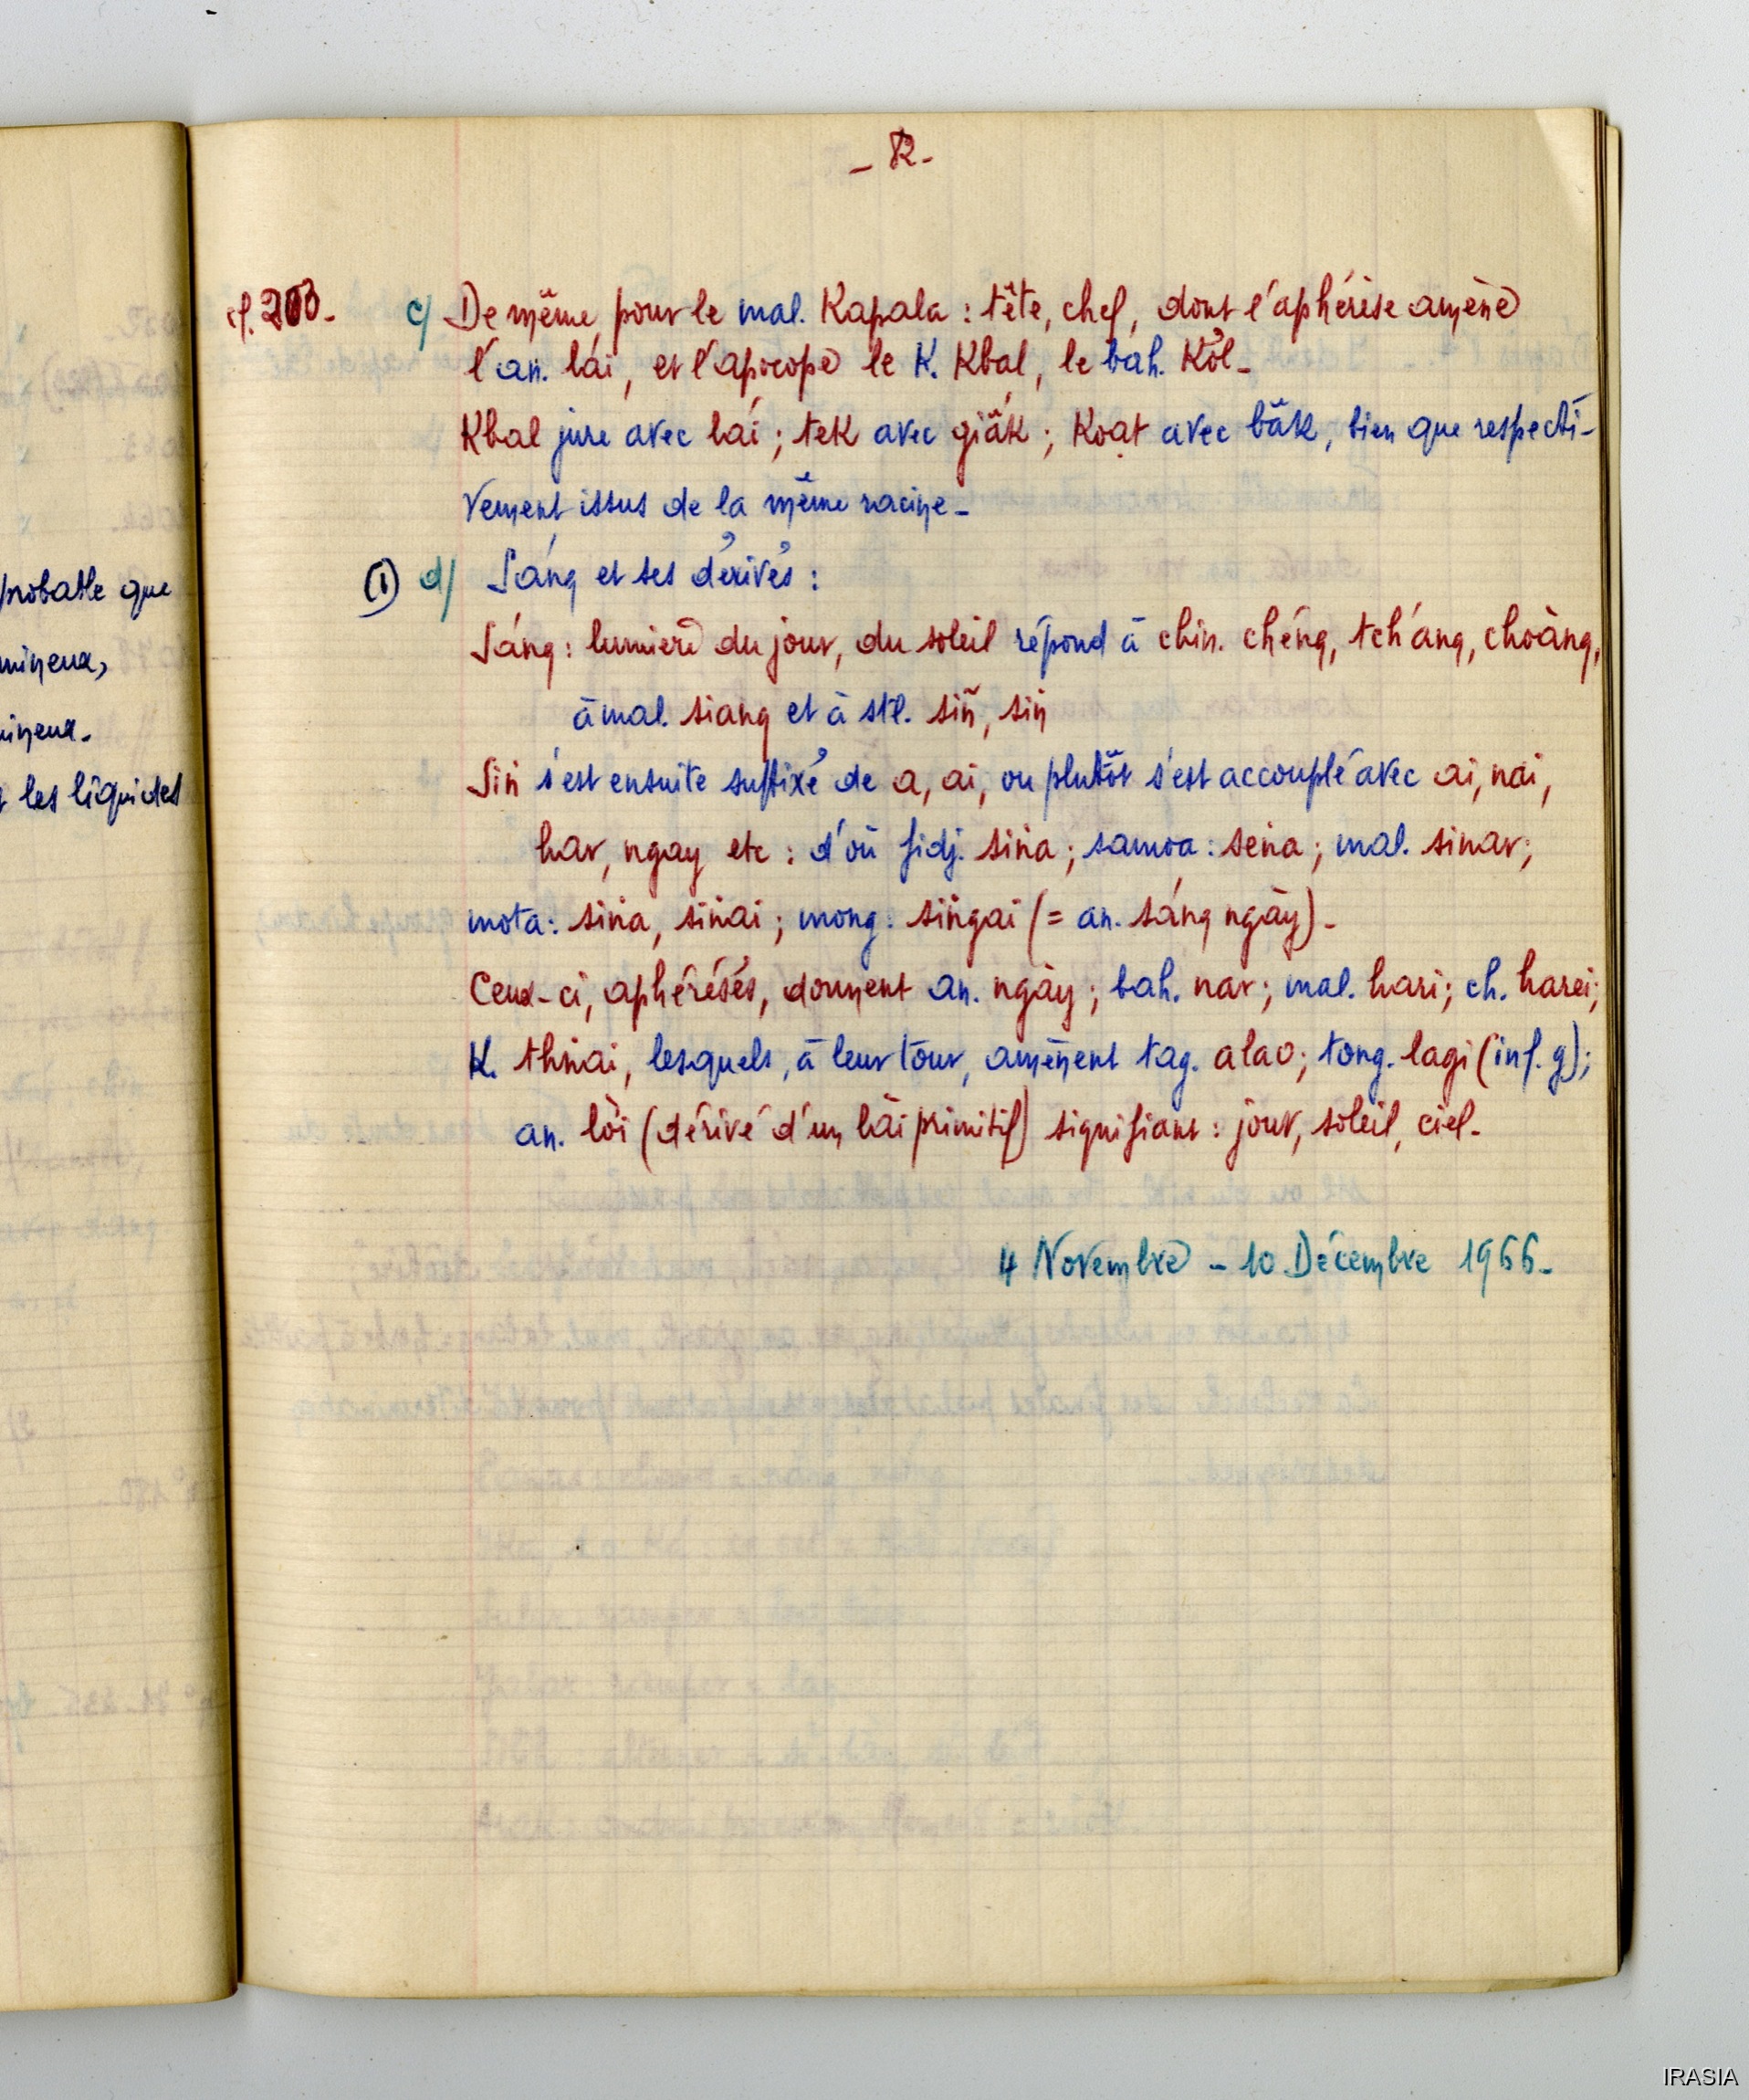 probable que
mineux,
mineux.
les liquides
- 82 -
cf. 203. c/ De même pour le mal. Kapala : tête, chef, dont l'aphérèse amène
l'an. lái, et l'apocope le K. Kbal, le bah. Köl.
Kbal jure avec lái ; tek avec giăk ; Koat avec băk, bien que respecti-
vement issus de la même racine.
(1) d/ Sáng et ses dérivés :
Sáng : lumière du jour, du soleil répond à chin. chéng, tch'ang, choàng,
à mal. siang et à stl. siñ, sin
Siñ s'est ensuite suffixé de a, ai, ou plutôt s'est accouplé avec ai, nai,
har, ngay etc : d'où fidj. siṅa ; samoa : seṅa ; mal. sinar ;
mota : siṅa, siṅai ; mong. siṅgai (= an. sáng ngày).
Ceux-ci, aphérésés, donnent an. ngày ; bah. nar ; mal. hari ; ch. harei ;
K. thṅai, lesquels, à leur tour, amènent tag. alao ; tong. lagi (inf. g) ;
an. lòi (dérivé d'un lài primitif) signifiant : jour, soleil, ciel.
4 Novembre - 10 Décembre 1966.
IRASIA